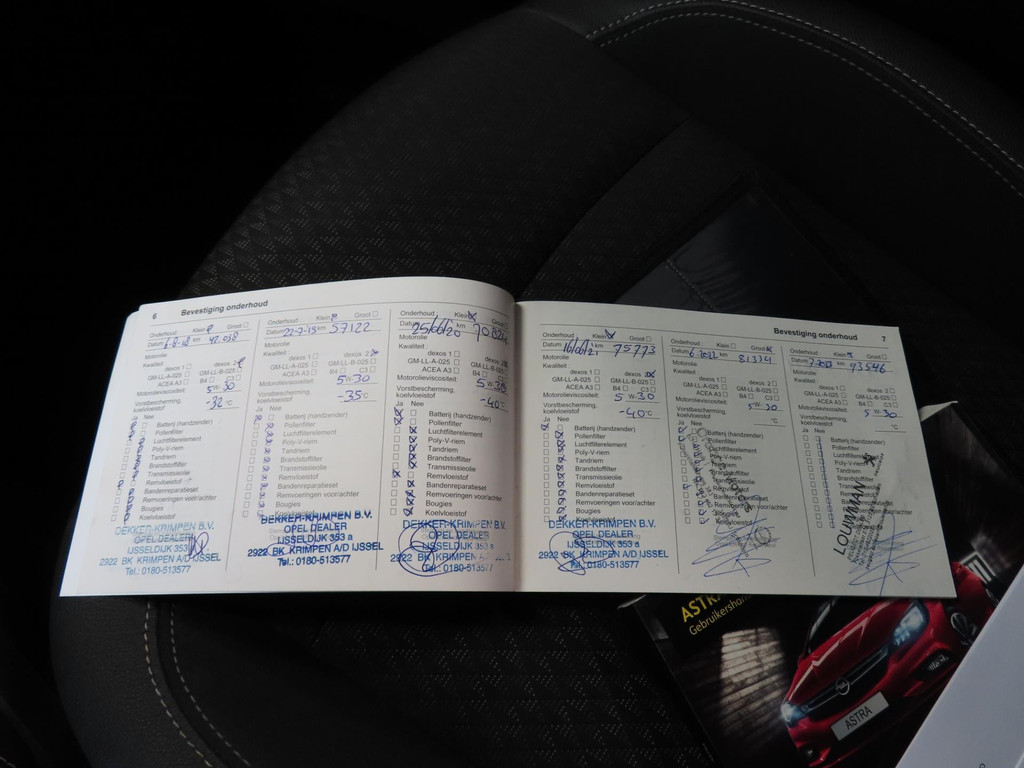 6 Bevestiging onderhoud
Onderhoud: Klein Groot
Datum 6-8-18 km 42.038
Motorolie
Kwaliteit:
dexos 1 dexos 2
GM-LL-A-025 GM-LL-B-025
ACEA A3 B4 C3
Motorolieviscositeit: 5 W 30
Vorstbescherming, koelvloeistof -32 °C
Ja Nee
Batterij (handzender)
Pollenfilter
Luchtfilterelement
Poly-V-riem
Tandriem
Brandstoffilter
Transmissieolie
Remvloeistof
Bandenreparatieset
Remvoeringen voor/achter
Bougies
Koelvloeistof
DEKKER-KRIMPEN B.V.
OPEL DEALER
IJSSELDIJK 353 a
2922 BK KRIMPEN A/D IJSSEL
Tel.: 0180-513577
Onderhoud: Klein Groot
Datum 22-7-19 km 57122
Motorolie
Kwaliteit:
dexos 1 dexos 2
GM-LL-A-025 GM-LL-B-025
ACEA A3 B4 C3
Motorolieviscositeit: 5 W 30
Vorstbescherming, koelvloeistof -35 °C
Ja Nee
Batterij (handzender)
Pollenfilter
Luchtfilterelement
Poly-V-riem
Tandriem
Brandstoffilter
Transmissieolie
Remvloeistof
Bandenreparatieset
Remvoeringen voor/achter
Bougies
DEKKER-KRIMPEN B.V.
OPEL DEALER
IJSSELDIJK 353 a
2922 BK KRIMPEN A/D IJSSEL
Tel.: 0180-513577
Onderhoud: Klein Groot
Datum 25/06/20 km
Motorolie
Kwaliteit:
dexos 1 dexos 2
GM-LL-A-025 GM-LL-B-025
ACEA A3 B4 C3
Motorolieviscositeit: 5 W 30
Vorstbescherming, koelvloeistof -40 °C
Ja Nee
Batterij (handzender)
Pollenfilter
Luchtfilterelement
Poly-V-riem
Tandriem
Brandstoffilter
Transmissieolie
Remvloeistof
Bandenreparatieset
Remvoeringen voor/achter
Bougies
Koelvloeistof
DEKKER-KRIMPEN B.V.
OPEL DEALER
IJSSELDIJK 353 a
2922 BK KRIMPEN A/D
Tel.: 0180-513577
Bevestiging onderhoud 7
Onderhoud: Klein Groot
Datum km 75773
Motorolie
Kwaliteit:
dexos 1 dexos 2
GM-LL-A-025 GM-LL-B-025
ACEA A3 B4 C3
Motorolieviscositeit: 5 W 30
Vorstbescherming, koelvloeistof -40 °C
Ja Nee
Batterij (handzender)
Pollenfilter
Luchtfilterelement
Poly-V-riem
Tandriem
Brandstoffilter
Transmissieolie
Remvloeistof
Bandenreparatieset
Remvoeringen voor/achter
Bougies
Koelvloeistof
DEKKER-KRIMPEN B.V.
OPEL DEALER
IJSSELDIJK 353 a
2922 BK KRIMPEN A/D IJSSEL
Tel.: 0180-513577
Onderhoud: Klein Groot
Datum km 81334
Motorolie
Kwaliteit:
dexos 1 dexos 2
GM-LL-A-025 GM-LL-B-025
ACEA A3 B4 C3
Motorolieviscositeit: 5 W 30
Vorstbescherming, koelvloeistof °C
Ja Nee
Batterij (handzender)
Pollenfilter
Luchtfilterelement
Poly-V-riem
Tandriem
Brandstoffilter
Transmissieolie
Remvloeistof
Bandenreparatieset
Remvoeringen voor/achter
Bougies
Koelvloeistof
Onderhoud: Klein Groot
Datum km 93546
Motorolie
Kwaliteit:
dexos 1 dexos 2
GM-LL-A-025 GM-LL-B-025
ACEA A3 B4 C3
Motorolieviscositeit: 5 W 30
Vorstbescherming, koelvloeistof °C
Ja Nee
Batterij (handzender)
Pollenfilter
Luchtfilterelement
Poly-V-riem
Tandriem
Brandstoffilter
Transmissieolie
Remvloeistof
Bandenreparatieset
Remvoeringen voor/achter
Bougies
Koelvloeistof
LOUWMAN
ASTRA
ASTRA